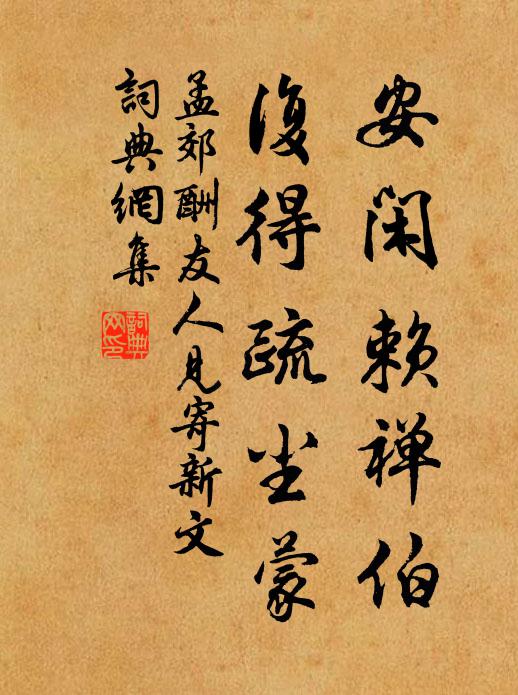 安闲赖禅伯
復得疏尘蒙
孟郊酬友人見寄新文
詞典網集
詞典網印